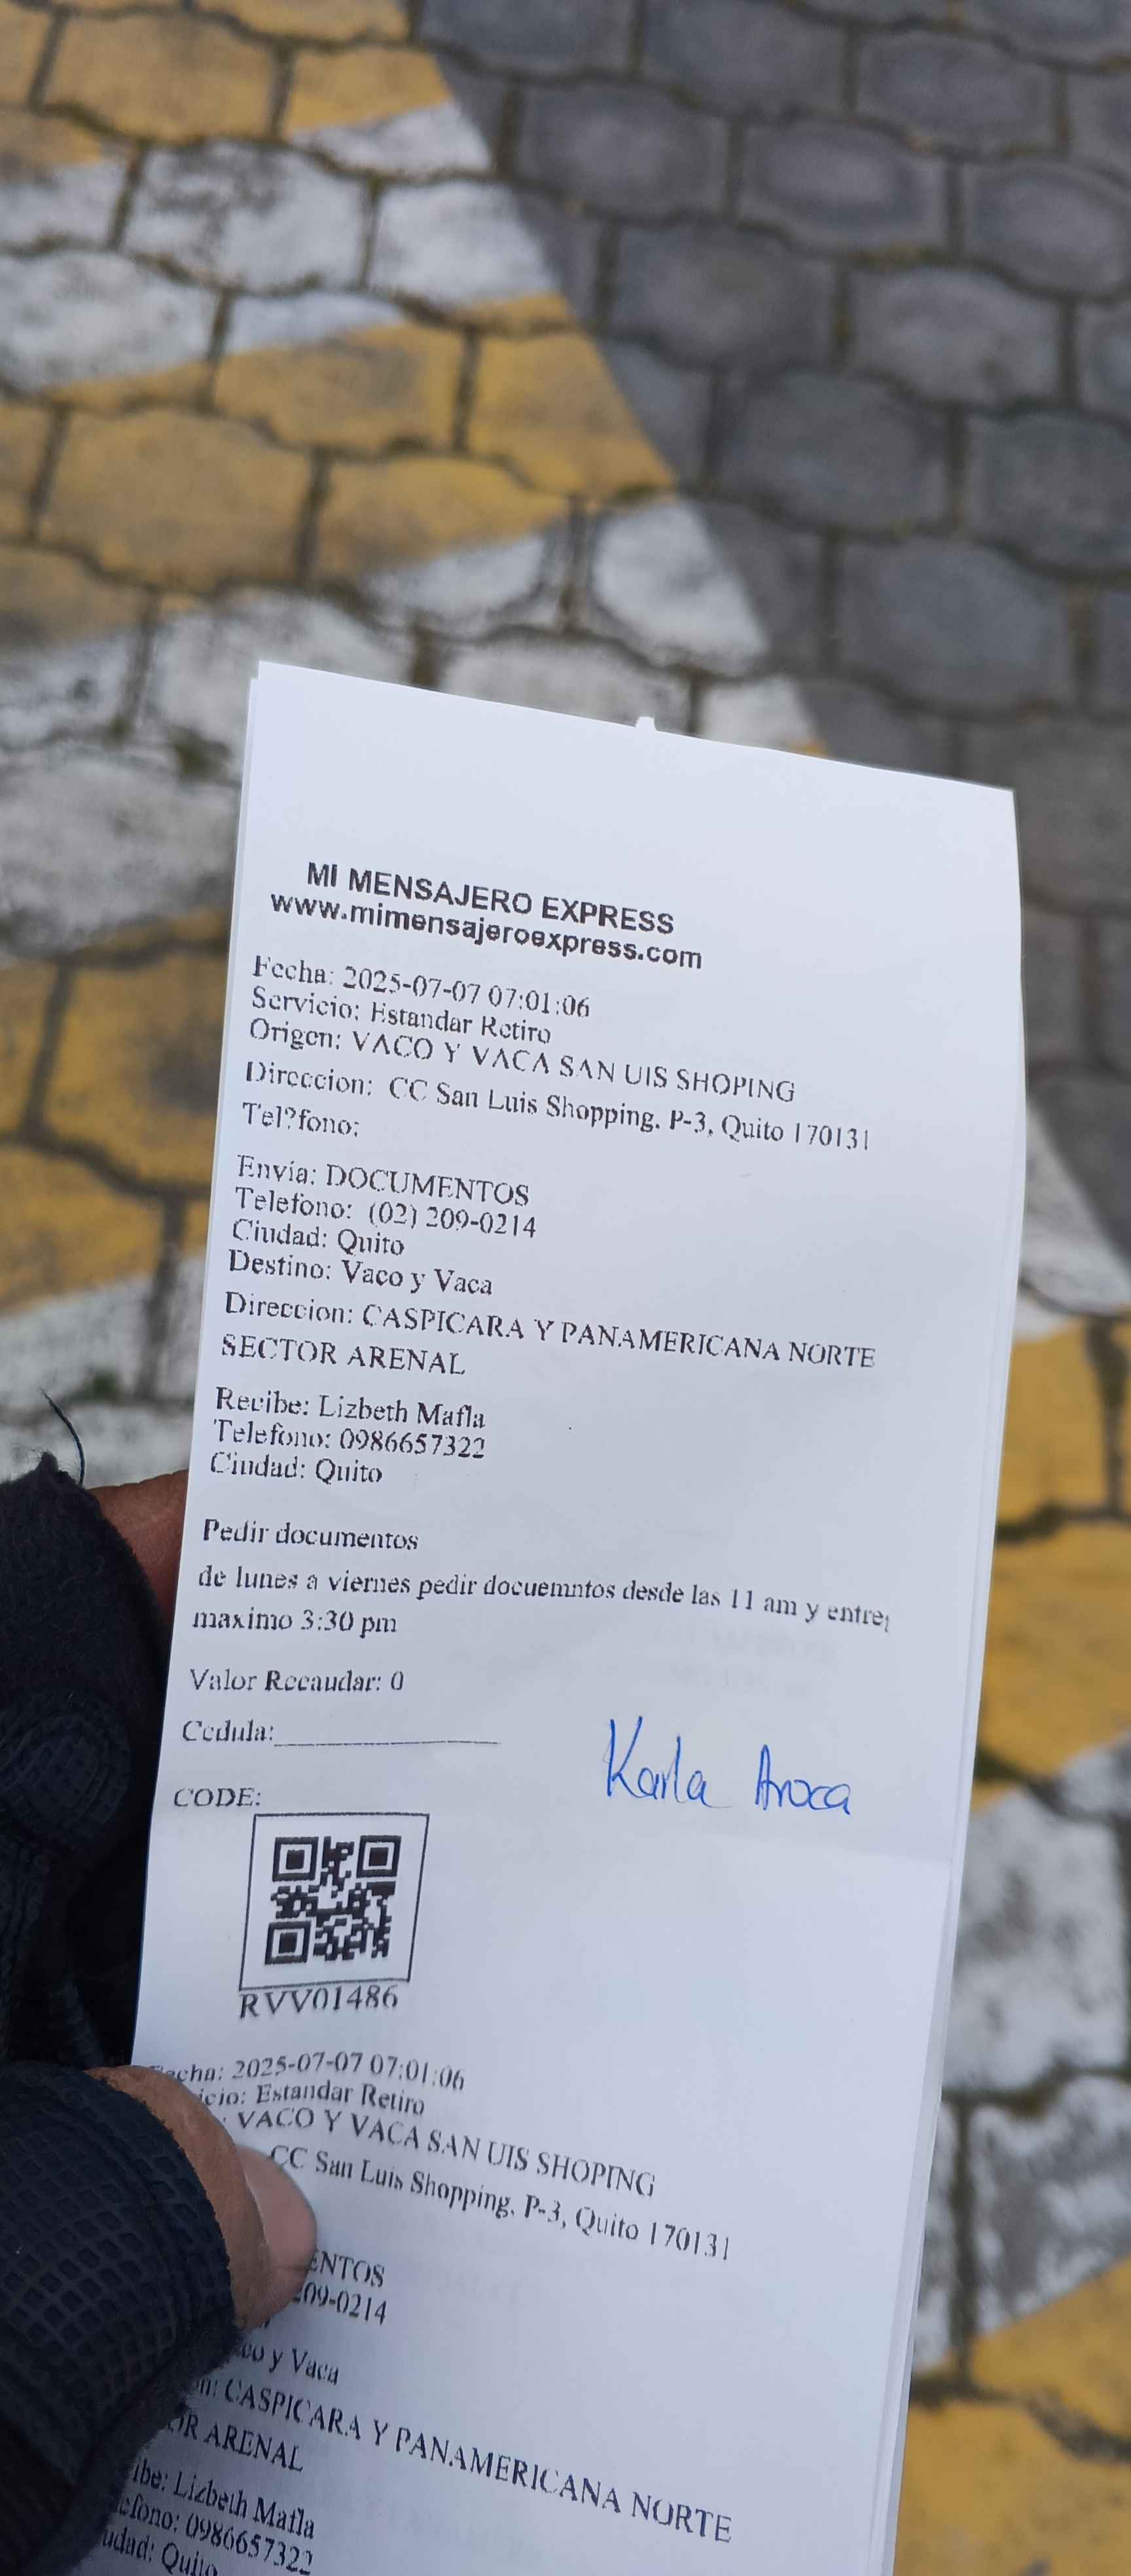 MI MENSAJERO EXPRESS
www.mimensajeroexpress.com
Fecha: 2025-07-07 07:01:06
Servicio: Estandar Retiro
Origen: VACO Y VACA SAN UIS SHOPING
Direccion: CC San Luis Shopping. P-3, Quito 170131
Tel?fono:
Envia: DOCUMENTOS
Telefono: (02) 209-0214
Ciudad: Quito
Destino: Vaco y Vaca
Direccion: CASPICARA Y PANAMERICANA NORTE
SECTOR ARENAL
Recibe: Lizbeth Mafla
Telefono: 0986657322
Ciudad: Quito
Pedir documentos
de lunes a viernes pedir docuemntos desde las 11 am y entre
maximo 3:30 pm
Valor Recaudar: 0
Cedula:
Karla Aroca
CODE:
RVV01486
echa: 2025-07-07 07:01:06
icio: Estandar Retiro
: VACO Y VACA SAN UIS SHOPING
CC San Luis Shopping. P-3, Quito 170131
ENTOS
209-0214
co y Vaca
n: CASPICARA Y PANAMERICANA NORTE
OR ARENAL
ibe: Lizbeth Mafla
efono: 0986657322
udad: Quito